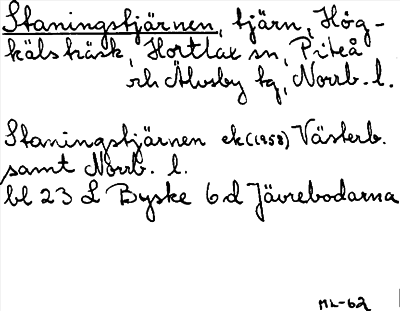 Staningstjärnen, tjärn, Hög-
kälskäsk, Hortlax sn, Piteå
och Älvsby tg, Norrb. l.
Staningstjärnen ek(1958) Västerb.
samt Norrb. l.
bl 23 L Byske 6d Jävrebodarna
ML-62